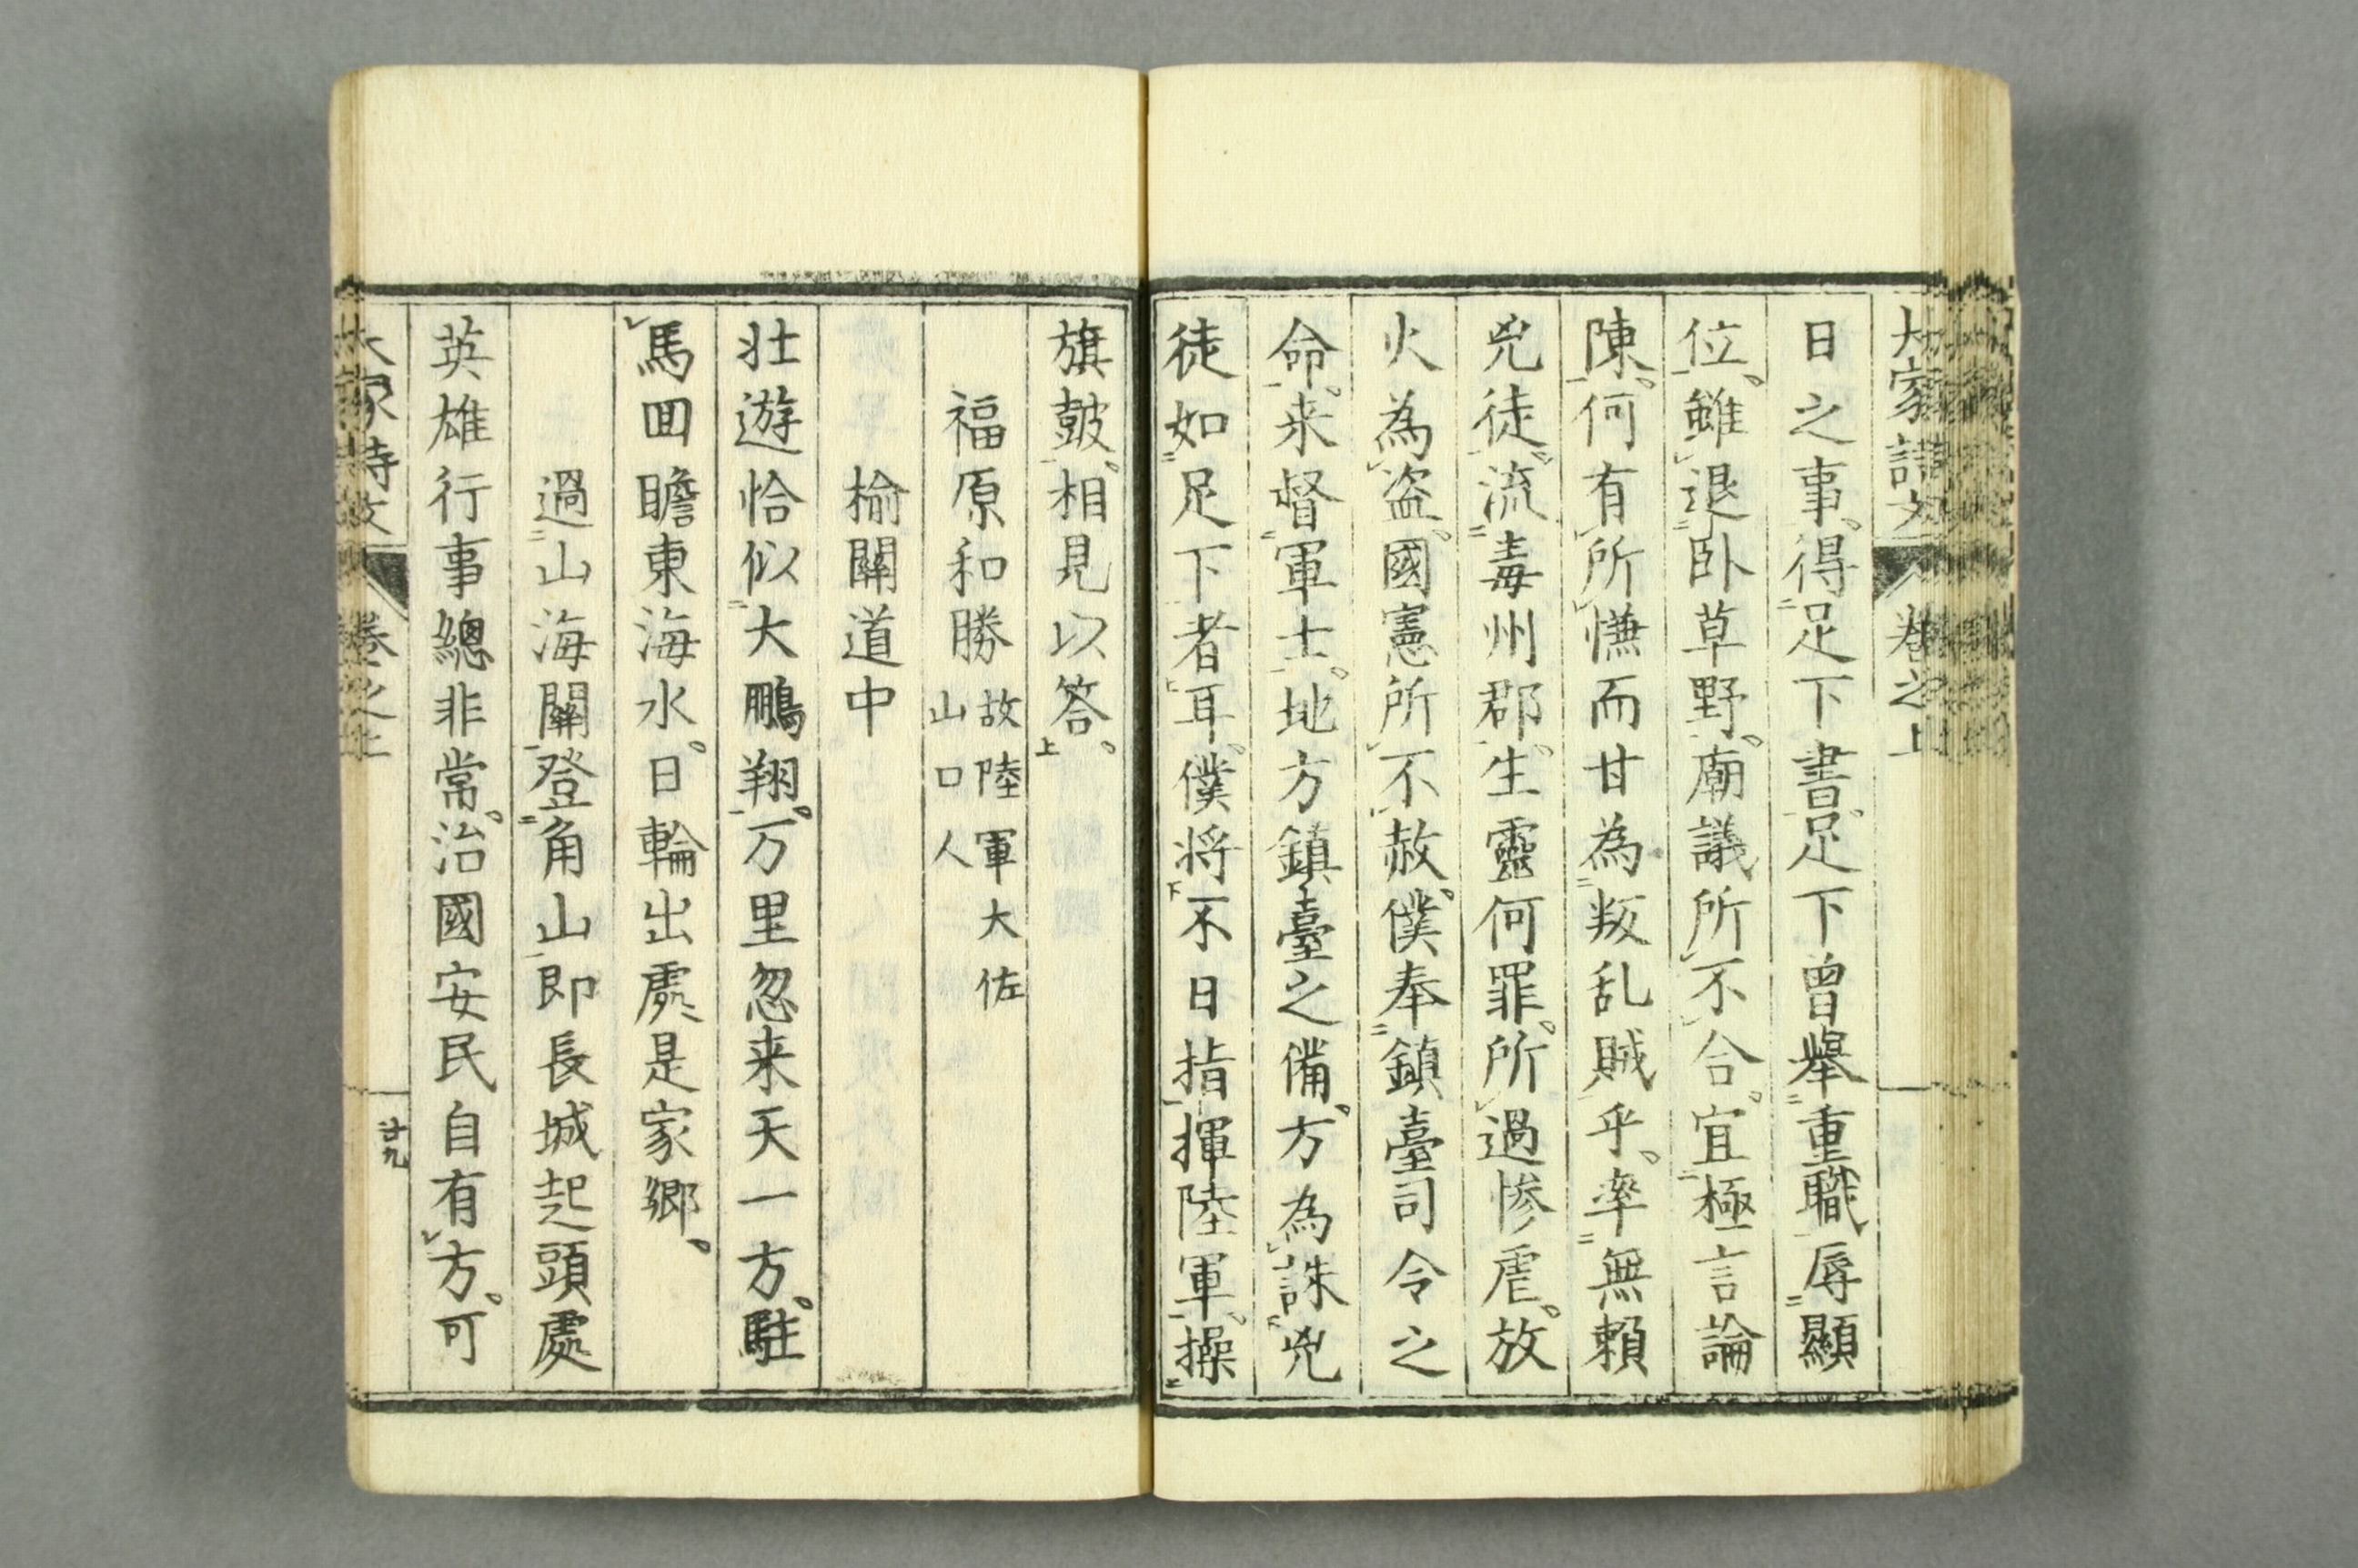 大家詩文 卷之上
日之事。得足下書。足下曾舉重職辱顯
位。雖退卧草野。廟議所不合。宜極言論
陳。何有所慊而甘為叛乱賊乎。率無賴
兇徒。流毒州郡。生靈何罪。所過惨虐。放
火為盗。國憲所不赦。僕奉鎮臺司令之
命。来督軍士。地方鎮臺之備。方為誅兇
徒如足下者耳。僕将不日指揮陸軍。操
旗鼓。相見以答。
福原和勝 故陸軍大佐
山口人
榆關道中
壮遊恰似大鵬翔。万里忽来天一方。駐
馬回瞻東海水。日輪出處是家鄉。
過山海關登角山即長城起頭處
英雄行事總非常。治國安民自有方。可
大家詩文 卷之上 廿九